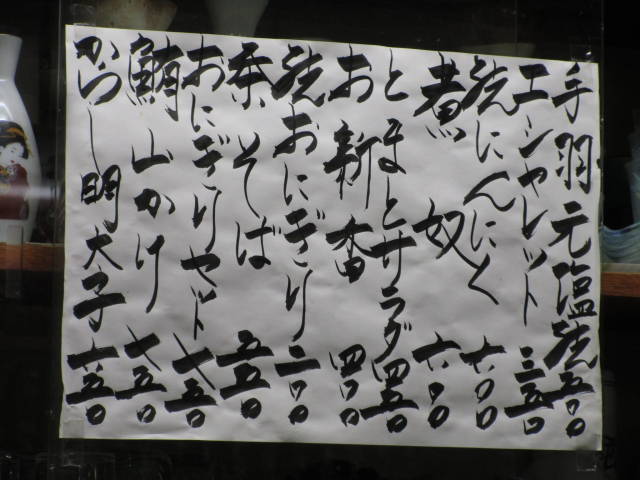 手羽元塩焼五〇〇
エシャレット三五〇
焼にんにく
煮奴六〇〇
とまとサラダ四五〇
お新香四〇〇
焼おにぎり二〇〇
茶そば五五〇
おにぎりセット七五〇
鮪山かけ七五〇
からし明太子七五〇